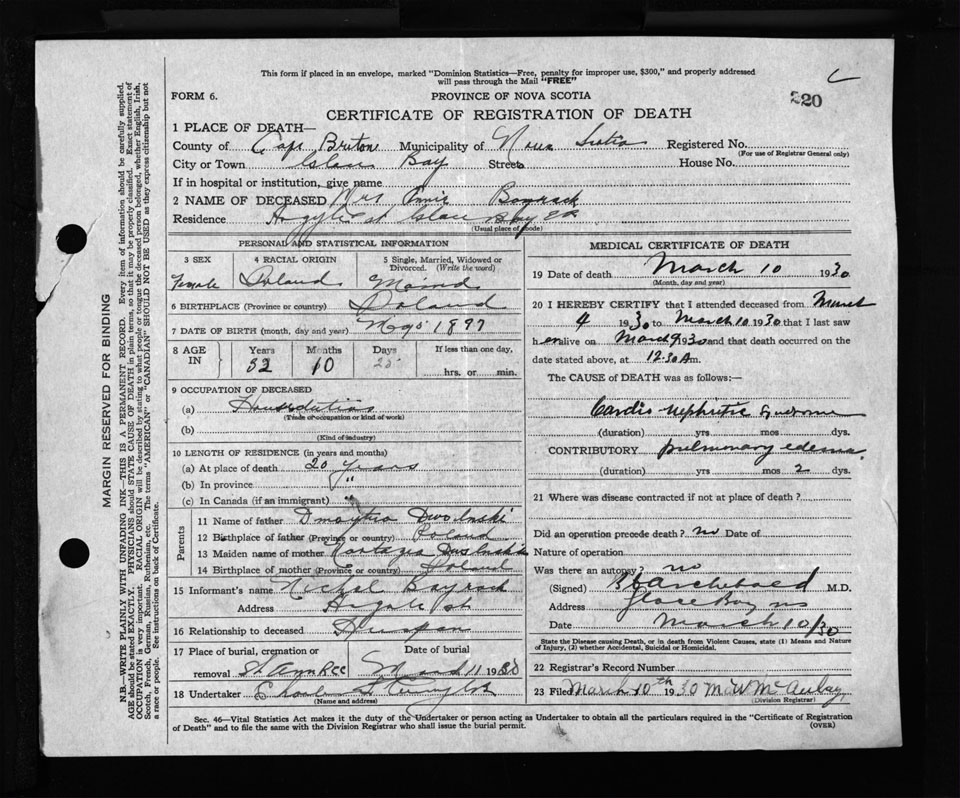 This form if placed in an envelope, marked "Dominion Statistics—Free, penalty for improper use, $300," and properly addressed
will pass through the Mail "FREE"
FORM 6.
PROVINCE OF NOVA SCOTIA
220
CERTIFICATE OF REGISTRATION OF DEATH
1 PLACE OF DEATH—
County of Cape Breton Municipality of Nova Scotia Registered No.
(For use of Registrar General only)
City or Town Glace Bay Street House No.
If in hospital or institution, give name
2 NAME OF DECEASED Mrs Annie
Residence Argyle st Glace Bay
(Usual place of abode)
PERSONAL AND STATISTICAL INFORMATION
3 SEX
4 RACIAL ORIGIN
5 Single, Married, Widowed or Divorced. (Write the word)
Female Poland
6 BIRTHPLACE (Province or country) Poland
7 DATE OF BIRTH (month, day and year) 1897
8 AGE IN
Years Months Days If less than one day,
32 10 hrs. or min.
9 OCCUPATION OF DECEASED
(a)
(Trade or occupation or kind of work)
(b)
(Kind of industry)
10 LENGTH OF RESIDENCE (in years and months)
(a) At place of death 20 years
(b) In province "
(c) In Canada (if an immigrant) "
Parents
11 Name of father
12 Birthplace of father (Province or country) Poland
13 Maiden name of mother
14 Birthplace of mother (Province or country) Poland
15 Informant's name
Address Argyle st
16 Relationship to deceased
17 Place of burial, cremation or removal St Ann
Date of burial March 11 1930
18 Undertaker
(Name and address)
MEDICAL CERTIFICATE OF DEATH
19 Date of death March 10 1930
(Month, day and year)
20 I HEREBY CERTIFY that I attended deceased from March
4 1930 to March 10 1930 that I last saw
h er alive on March 9 1930 and that death occurred on the
date stated above, at 12.30 A m.
The CAUSE of DEATH was as follows:—
Cardio-nephritic syndrome
(duration) yrs mos dys.
CONTRIBUTORY pulmonary edema
(duration) yrs mos 2 dys.
21 Where was disease contracted if not at place of death?
Did an operation precede death? no Date of
Nature of operation
Was there an autopsy? no
(Signed) Archibald M.D.
Address Glace Bay NS
Date March 10/30
State the Disease causing Death, or in death from Violent Causes, state (1) Means and Nature
of Injury, (2) whether Accidental, Suicidal or Homicidal.
22 Registrar's Record Number
23 Filed March 10th 1930 M. W McAulay
(Division Registrar)
Sec. 46—Vital Statistics Act makes it the duty of the Undertaker or person acting as Undertaker to obtain all the particulars required in the "Certificate of Registration
of Death" and to file the same with the Division Registrar who shall issue the burial permit.
(OVER)
MARGIN RESERVED FOR BINDING
N.B.—WRITE PLAINLY WITH UNFADING INK—THIS IS A PERMANENT RECORD. Every item of information should be carefully supplied.
AGE should be stated EXACTLY. PHYSICIANS should STATE CAUSE OF DEATH in plain terms, so that it may be properly classified. Exact statement of
OCCUPATION is very important. RACIAL ORIGIN will be described by stating to what people or tongue the deceased person belonged, whether English, Irish,
Scotch, French, German, Russian, Ruthenian, etc. The terms "AMERICAN" or "CANADIAN" SHOULD NOT BE USED as they express citizenship but not
a race or people. See instructions on back of Certificate.